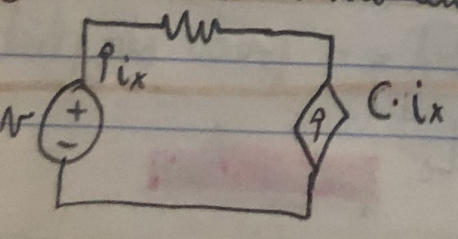 ix
v
+
-
C·ix